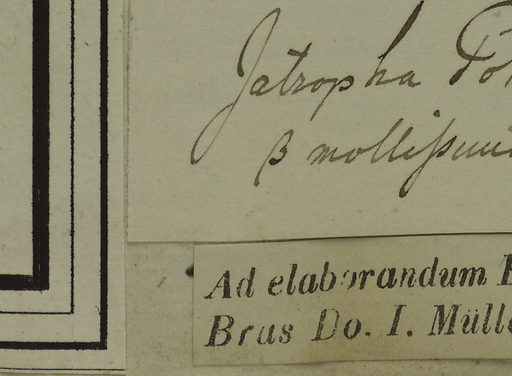 Jatropha Po
β mollissim
Ad elaborandum
Bras Do. I. Mülle